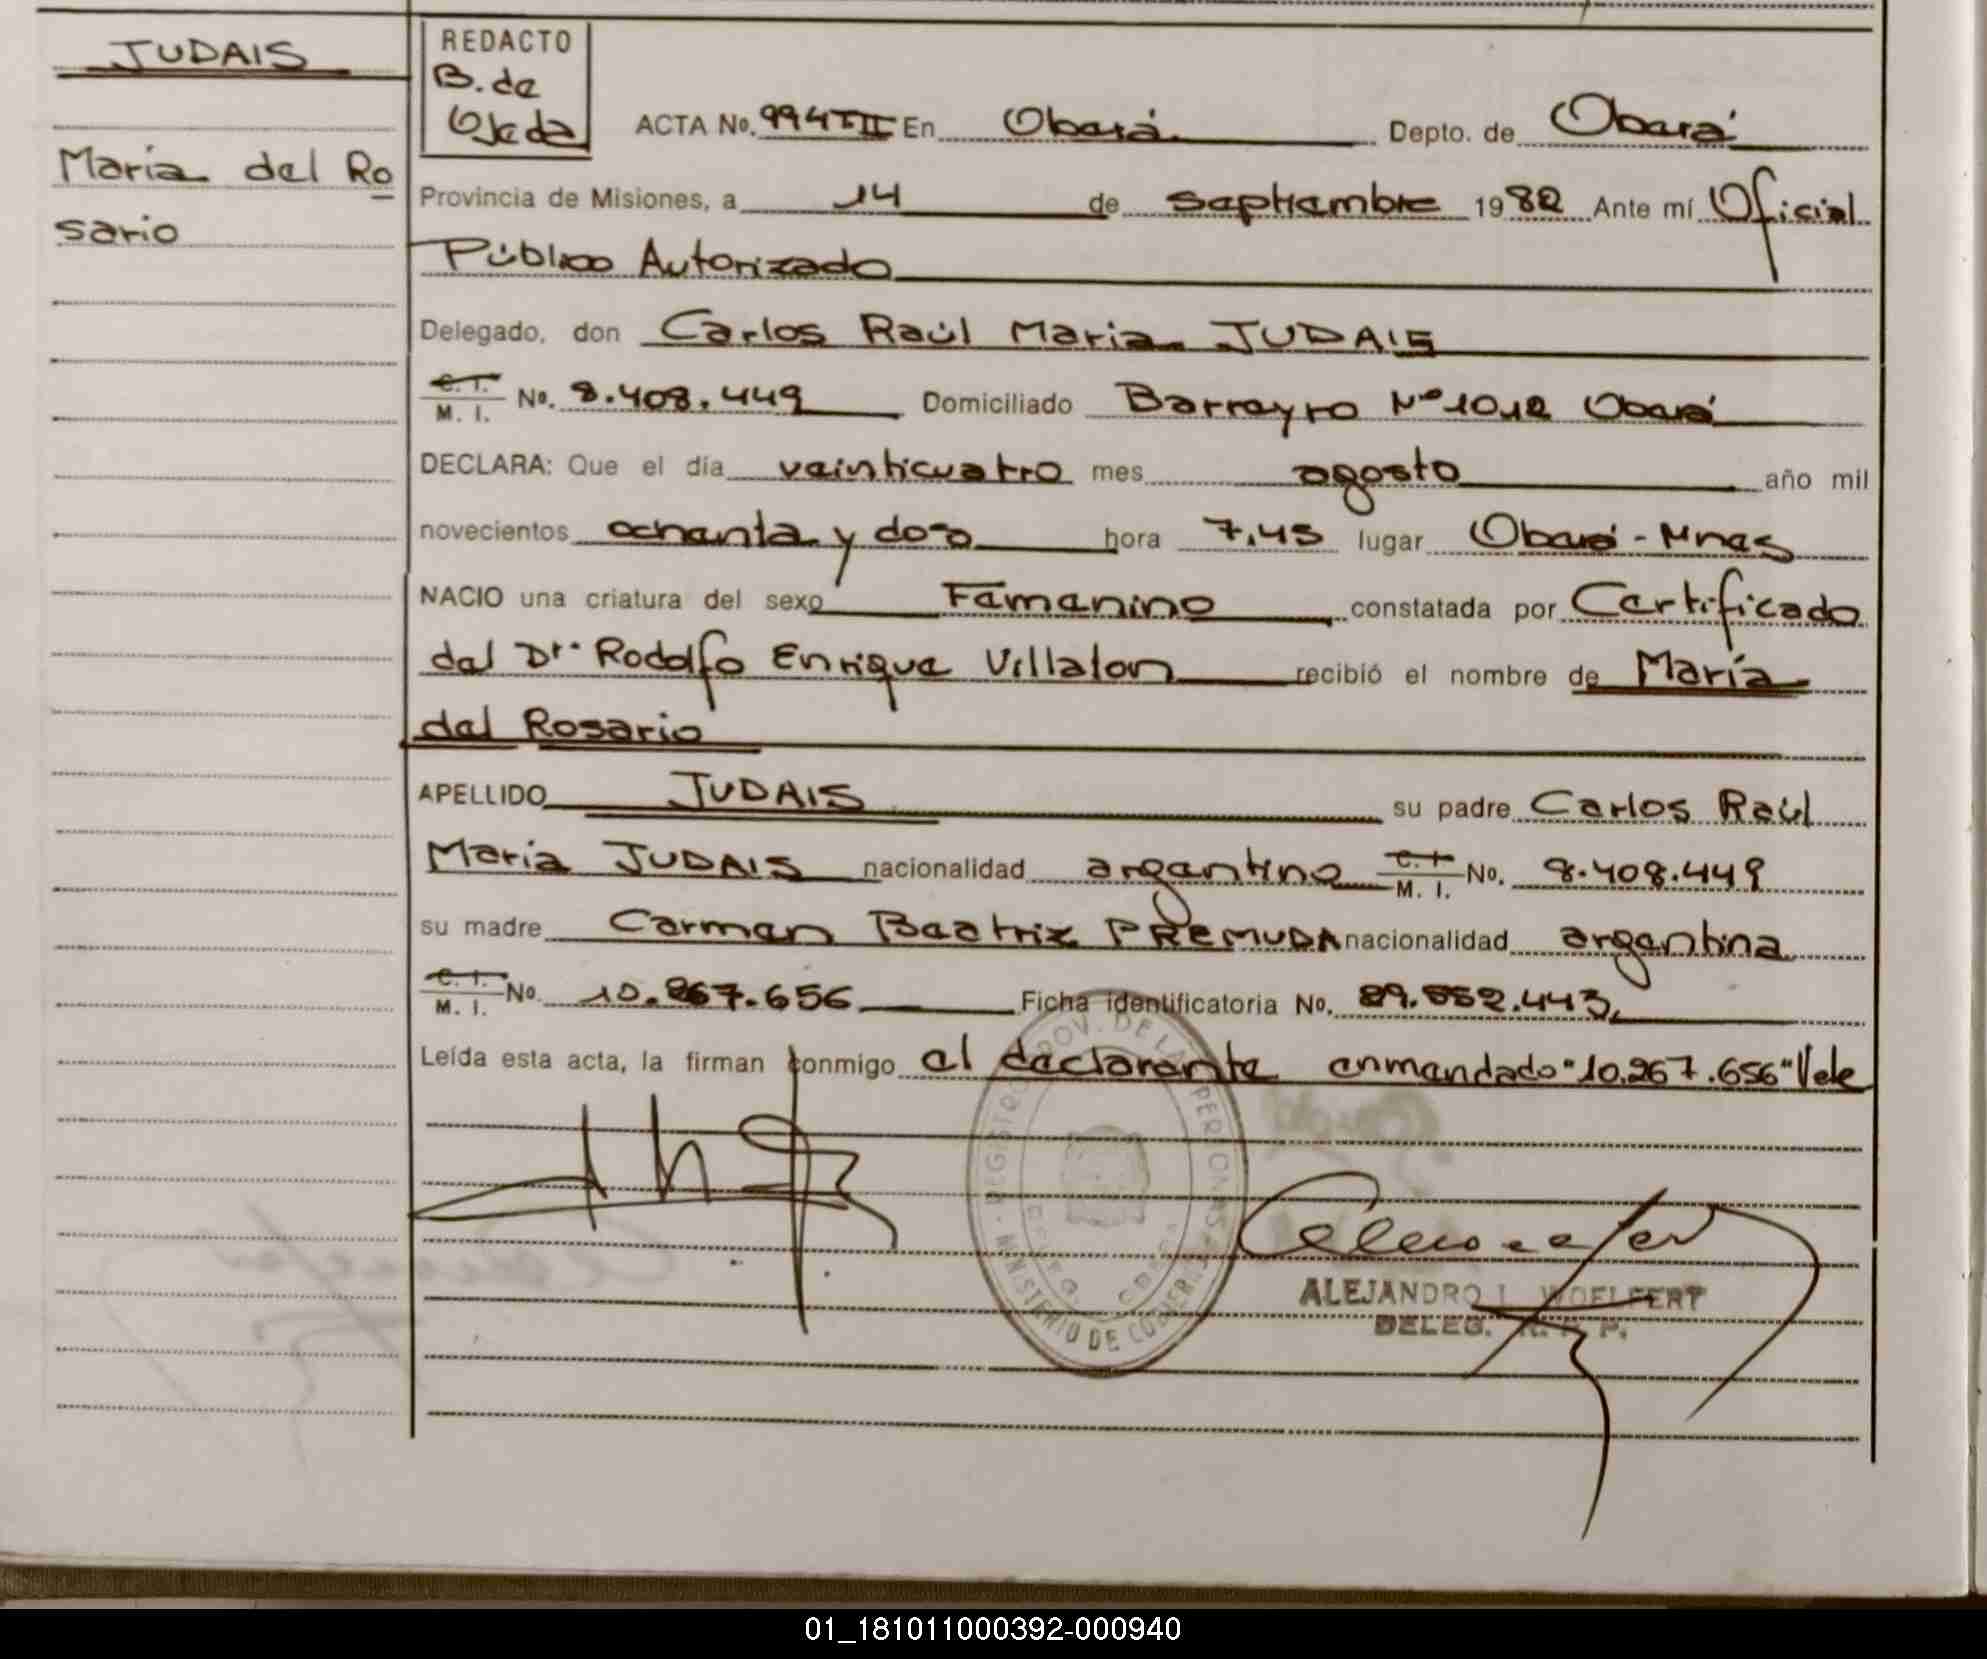 JUDAIS
Maria del Ro
sario
REDACTO
B. de
Ojeda
ACTA No. 994 T II En Oberá Depto. de Oberá
Provincia de Misiones, a 14 de septiembre 1982 Ante mí Oficial
Público Autorizado
Delegado, don Carlos Raúl Maria JUDAIS
C. I. M. I. No. 8.408.449 Domiciliado Barreyro Nº 1012 Oberá
DECLARA: Que el día veinticuatro mes agosto año mil
novecientos ochenta y dos hora 7,45 lugar Oberá - Mnes
NACIO una criatura del sexo Femenino constatada por Certificado
del Dr. Rodolfo Enrique Villalon recibió el nombre de María
del Rosario
APELLIDO JUDAIS su padre Carlos Raúl
Maria JUDAIS nacionalidad argentino C. I. M. I. No. 8.408.449
su madre Carmen Beatriz PREMUDA nacionalidad argentina
C. I. M. I. No. 10.267.656 Ficha identificatoria No. 29.552.443,
Leída esta acta, la firman conmigo el declarante enmendado "10.267.656" Vale
REGISTRO PROV. DE LAS PERSONAS
MINISTERIO DE GOBIERNO
ALEJANDRO L. WOELFERT
DELEG. R. P. P.
01_181011000392-000940